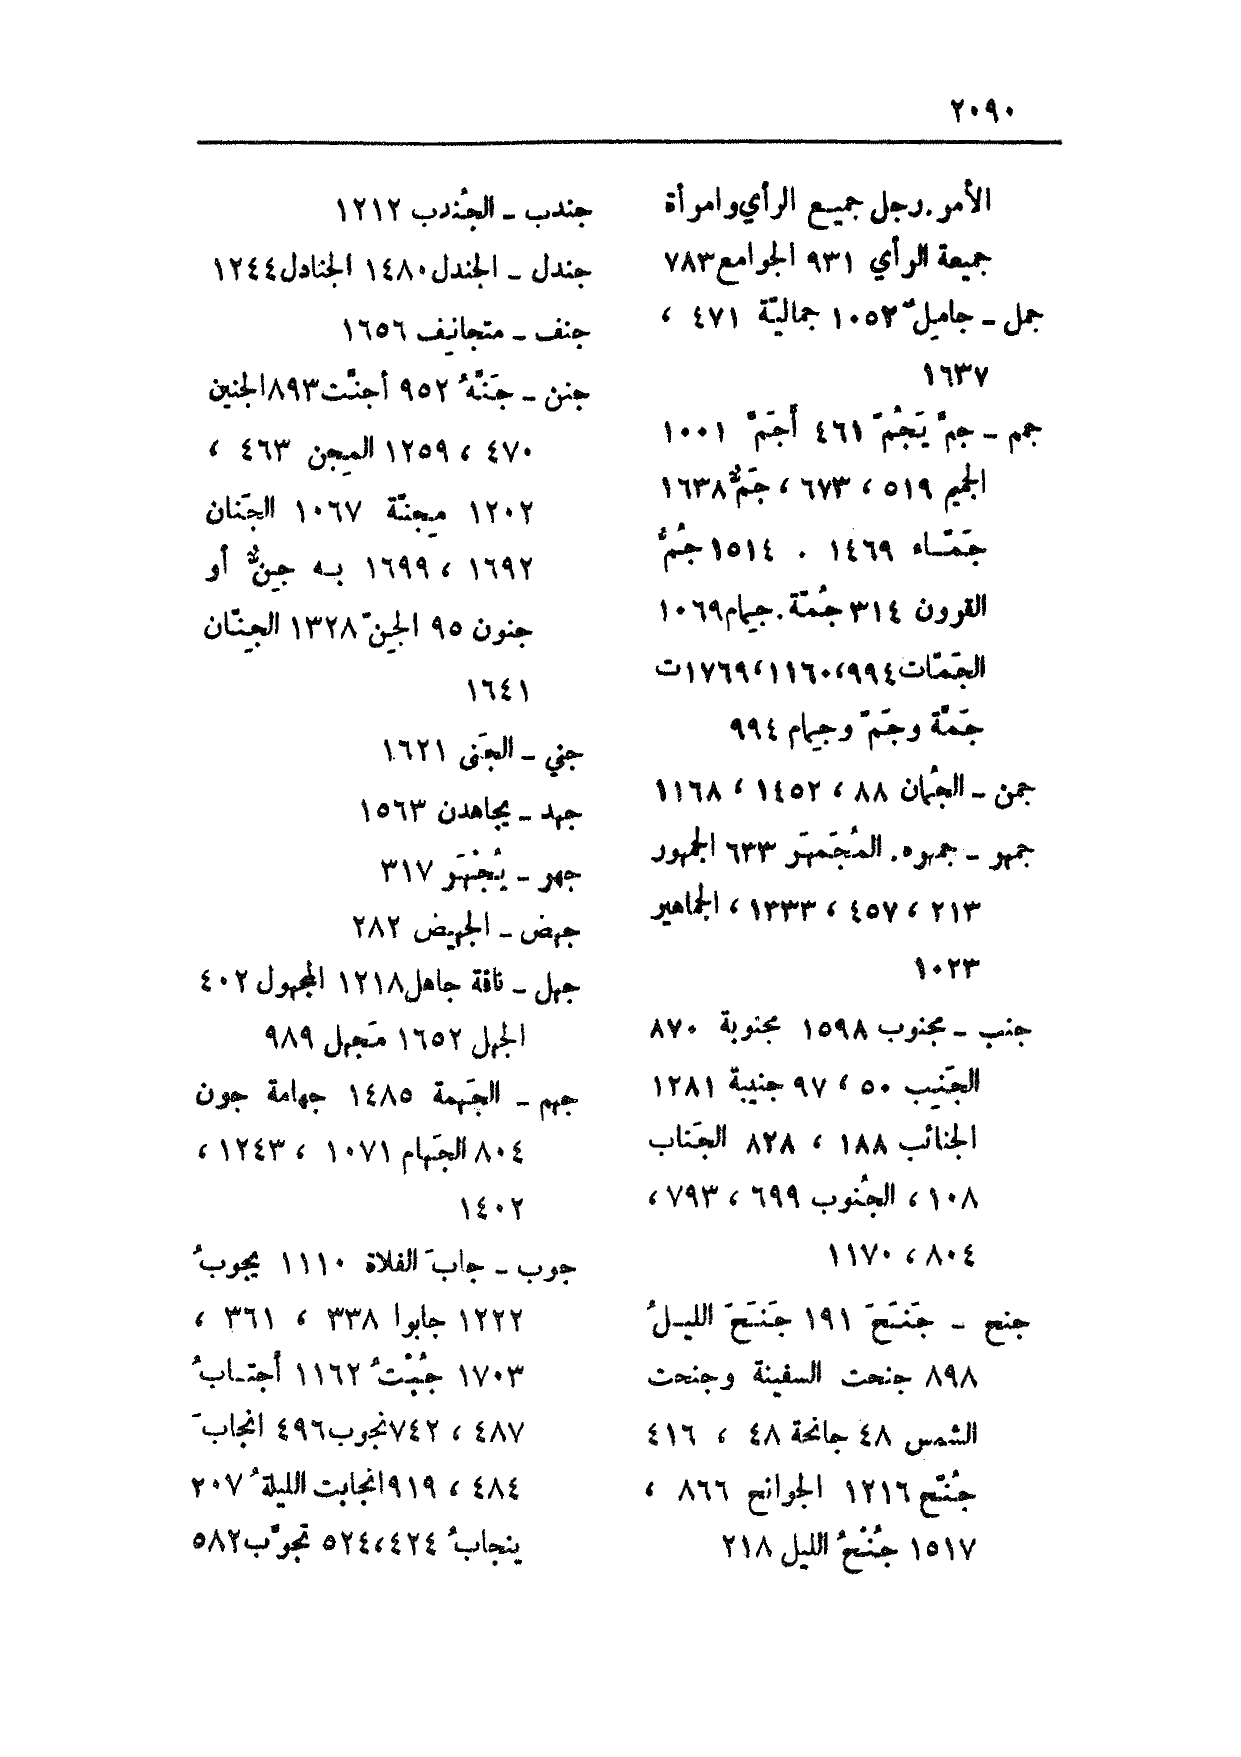 ٢٠٩٠
الأمر. رجل جميع الرأي وامرأة
جميعة الرأي ٩٣١ الجوامع ٧٨٣
جمل ـ جامِلٌ ١٠٥٢ جماليّة ٤٧١ ،
١٦٣٧
جمم ـ جمَّ يَجُمّ ٤٦١ أَجَمَّ ١٠٠١
الجميم ٥١٩ ، ٦٧٣ ، جَمٌّ ١٦٣٨
جَمّاء ١٤٦٩ . ١٥١٤ جُمُّ
القرون ٣١٤ جُمّة. جِمام ١٠٦٩
الجَمّات ٩٩٤،١١٦٠،١٧٦٩ت
جَمَّة وجَمّ وجِمام ٩٩٤
جمن ـ الجُمان ٨٨ ، ١٤٥٢ ، ١١٦٨
جمهر ـ جمهره. المُجَمهَر ٦٣٣ الجمهور
٢١٣ ، ٤٥٧ ، ١٣٣٣ ، الجماهير
١٠٢٣
جنب ـ مجنوب ١٥٩٨ مجنوبة ٨٧٠
الجَنيب ٥٠ ، ٩٧ جنيبة ١٢٨١
الجنائب ١٨٨ ، ٨٢٨ الجَناب
١٠٨ ، الجُنوب ٦٩٩ ، ٧٩٣ ،
٨٠٤ ، ١١٧٠
جنح ـ جَنَحَ ١٩١ جَنَحَ الليلُ
٨٩٨ جنحت السفينة وجنحت
الشمس ٤٨ جانحة ٤٨ ، ٤١٦
جُنّح ١٢١٦ الجوانح ٨٦٦ ،
١٥١٧ جُنْحُ الليل ٢١٨
جندب ـ الجُندب ١٢١٢
جندل ـ الجندل ١٤٨٠ الجنادل ١٢٤٤
جنف ـ متجانِف ١٦٥٦
جنن ـ جَنَّهُ ٩٥٢ أجنَّت ٨٩٣ الجنين
٤٧٠ ، ١٢٥٩ المِجن ٤٦٣ ،
١٢٠٢ مِجنّة ١٠٦٧ الجَنان
١٦٩٢ ، ١٦٩٩ به جِنٌّ أو
جنون ٩٥ الجِنّ ١٣٢٨ الجِنّان
١٦٤١
جني ـ الجَنى ١٦٢١
جهد ـ يجاهدن ١٥٦٣
جهر ـ يُجْهَر ٣١٧
جهض ـ الجهيض ٢٨٢
جهل ـ ناقة جاهل ١٢١٨ المجهول ٤٠٢
الجهل ١٦٥٢ مَجهل ٩٨٩
جهم ـ الجَهمة ١٤٨٥ جهامة جون
٨٠٤ الجَهام ١٠٧١ ، ١٢٤٣ ،
١٤٠٢
جوب ـ جابَ الفلاة ١١١٠ يجوبُ
١٢٢٢ جابوا ٣٣٨ ، ٣٦١ ،
١٧٠٣ جُبْتُ ١١٦٢ أجتابُ
٤٨٧ ، ٧٤٢ نجوب ٤٩٦ انجابَ
٤٨٤ ، ٩١٩ انجابت الليلةُ ٢٠٧
ينجابُ ٥٢٤،٤٢٤ تجوَّب ٥٨٢